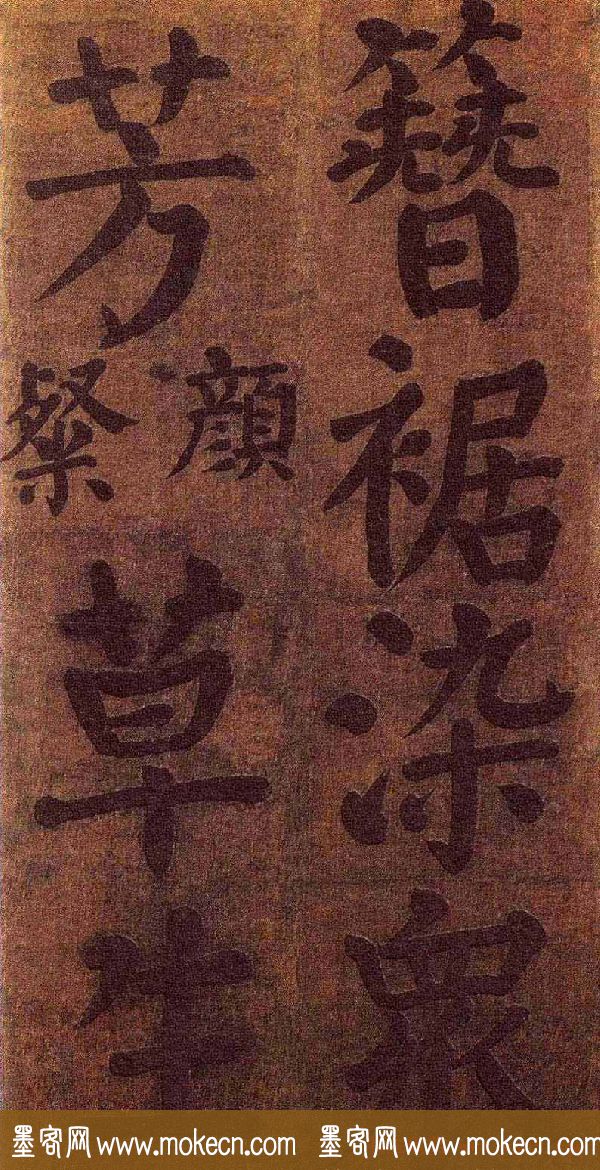 簪裾染衆
芳
顔
粲
草
墨客网 www.mokecn.com 墨客网 www.mokecn.com